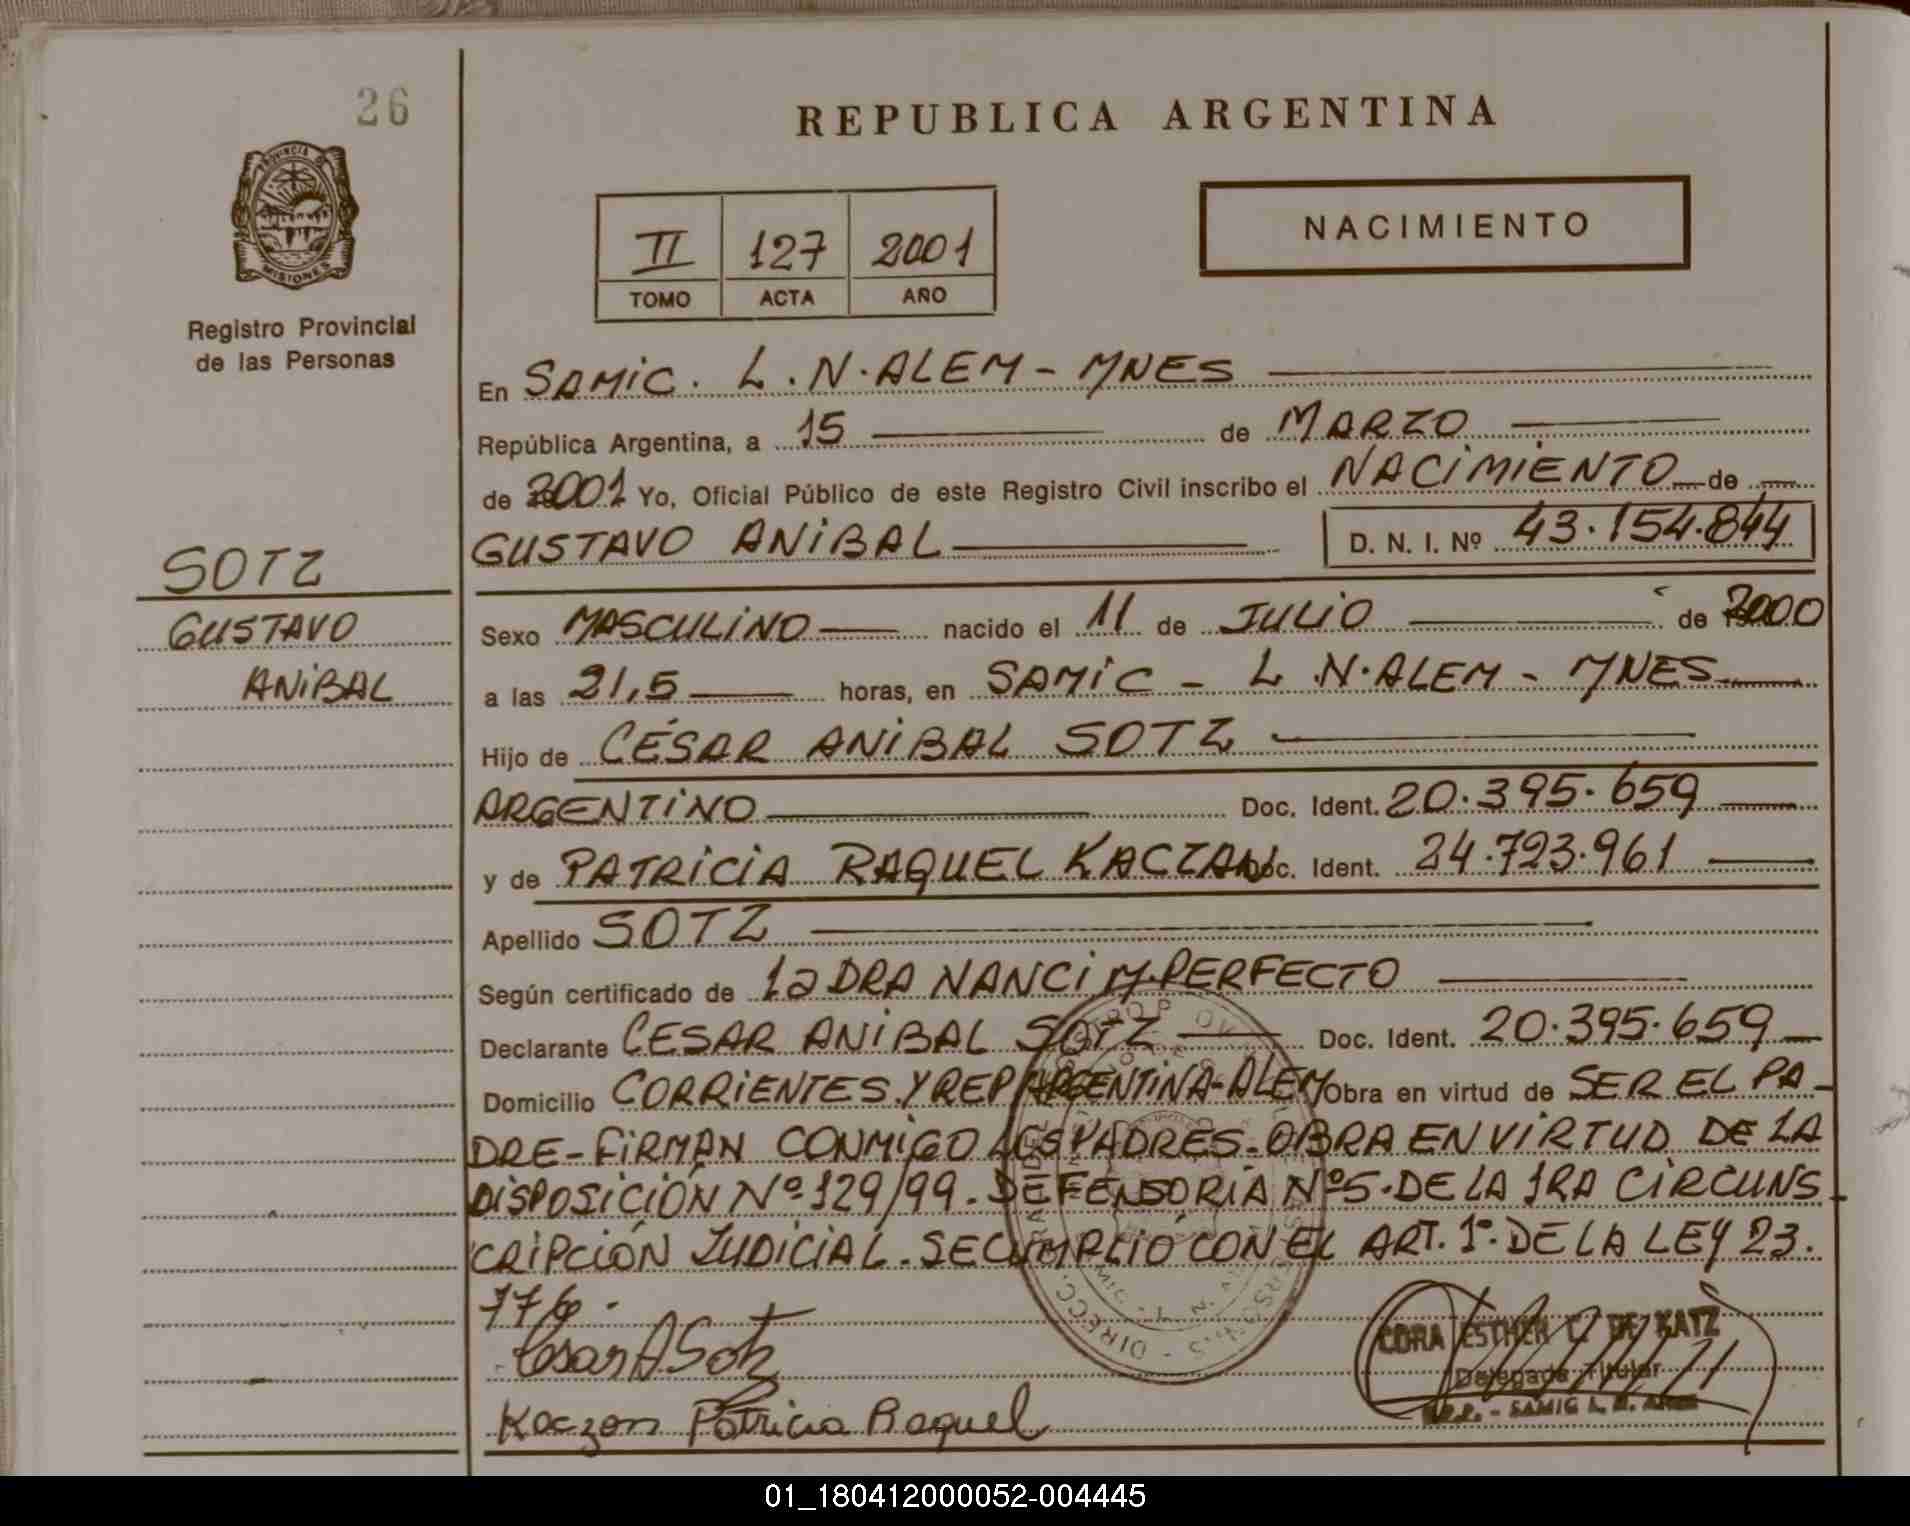 26
REPUBLICA ARGENTINA
PROVINCIA DE
MISIONES
Registro Provincial
de las Personas
II 127 2001
TOMO ACTA AÑO
NACIMIENTO
En SAMIC. L.N.ALEM - MNES
República Argentina, a 15 de MARZO
de 2001 Yo, Oficial Público de este Registro Civil inscribo el NACIMIENTO de
GUSTAVO ANIBAL D. N. I. Nº 43.154.844
SOTZ
GUSTAVO
ANIBAL
Sexo MASCULINO nacido el 11 de JULIO de 2000
a las 21,5 horas, en SAMIC - L.N.ALEM - MNES
Hijo de CÉSAR ANIBAL SOTZ
ARGENTINO Doc. Ident. 20.395.659
y de PATRICIA RAQUEL KACZAN Doc. Ident. 24.723.961
Apellido SOTZ
Según certificado de la DRA NANCI M.PERFECTO
Declarante CESAR ANIBAL SOTZ Doc. Ident. 20.395.659
Domicilio CORRIENTES Y REP ARGENTINA-ALEM Obra en virtud de SER EL PA-
DRE-FIRMAN CONMIGO LOS PADRES-OBRA EN VIRTUD DE LA
DISPOSICIÓN Nº 129/99. DEFENSORIA Nº5. DE LA 1RA CIRCUNS-
CRIPCIÓN JUDICIAL. SE CUMPLIÓ CON EL ART. 1º. DE LA LEY 23.
776.
Cesar A Sotz
Kaczan Patricia Raquel
CORA ESTHER C. DE KATZ
Delegada Titular
R.P.P. - SAMIC L. N. ALEM
01_180412000052-004445